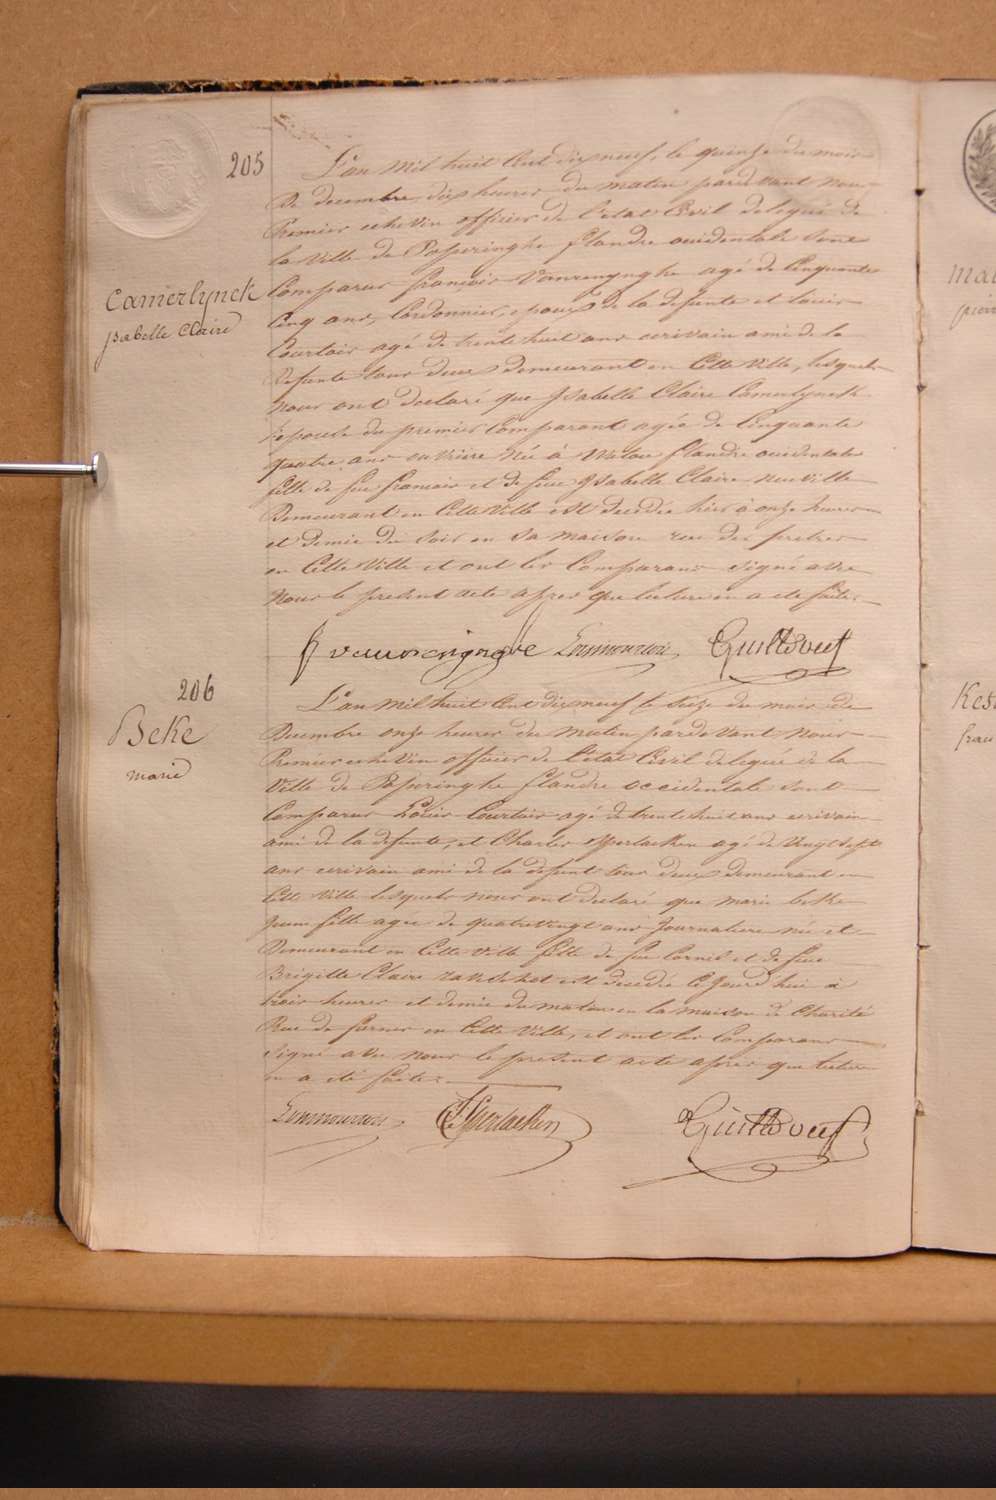 205
Camerlynck
Isabelle Claire
L'an mil huit Cent dix neuf, le quinze du mois
de decembre, dix heures du matin pardevant nous
Premier echevin officier de l'etat Civil delegué de
la Ville de Poperinghe flandre occidentale sont
Comparus françois Vanrenynghe agé de Cinquante
Cinq ans, Cordonnier, epoux de la defunte et Louis
Courtois agé de trente huit ans ecrivain ami de la
defunte tous deux demeurant en Cette Ville, lesquels
nous ont declaré que Isabelle Claire Camerlynck
Epouse du premier Comparant agée de Cinquante
quatre ans ouvriere née à Watou flandre occidentale
fille de feu francois et de feue Isabelle Claire Neuville
Demeurant en Cette Ville est decedée hier à onze heures
et demie du soir en sa maison rue des pretres
en Cette Ville et ont les Comparans signé avec
Nous le present acte apres que lecture en a ete faite.
206
Beke
marie
L'an mil huit Cent dix neuf le Seize du mois de
Decembre onze heures du matin pardevant Nous
Premier echevin officier de l'etat Civil delegué de la
Ville de Poperinghe flandre occidentale sont
Comparus Louis Courtois agé de trente huit ans ecrivain
ami de la defunte, et Charles Sperlaeken agé de Vingt sept
ans ecrivain ami de la defunt tous deux demeurant en
Cette Ville lesquels nous ont declaré que marie beke
jeune fille agée de quatrevingt ans Journaliere née et
Demeurant en Cette Ville fille de feu Cornel et de feue
Brigitte Claire est decedée Ce Jourd'hui à
trois heures et demie du matin en la maison de Charité
Rue de furnes en Cette Ville, et ont les Comparans
Signé avec nous le present acte apres que lecture
en a été faite.